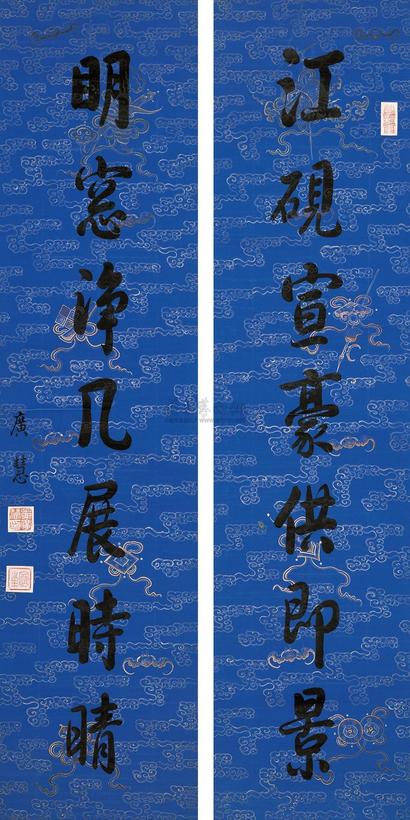 江硯宣豪供即景
明窓净几展時晴
廣慧